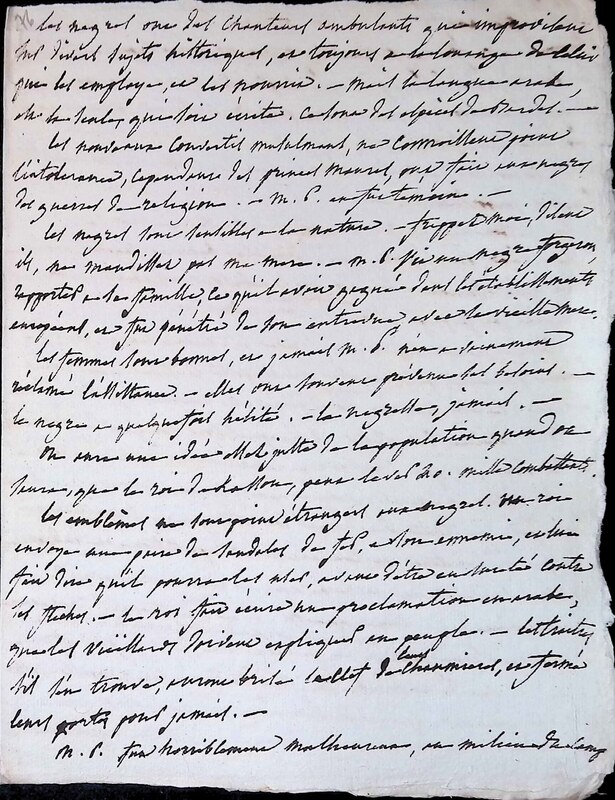 les negres ont des Chanteurs ambulants qui improvisent
sur divers sujets historiques, et toujours a la louange de Celui
qui les employe, et les nourrit. — mais la langue arabe,
est la seule, qui soit écrite. Ce sont des espèces de Bardes. —
les nouveaux Convertis musulmans, ne Connoissent point
l'intolerance, Cependant des princes Maures, ont fait aux negres
des guerres de religion. — M. P. en fut temoin. —
les negres sont sensibles a la nature. — frappez moi, disent
ils, ne maudissez pas ma mere. — M. P. vit un negre forgeron,
rapporter a sa famille, ce qu'il avoit gagné dans les établissements
européens, et fut pénétré de son entrevue avec sa vieille mere.
les femmes sont bonnes, et jamais M. P. n'en a vainement
réclamé l'assistance. — elles ont souvent prévenu ses besoins. —
le negre a quelquefois hésité. — la negresse, jamais. —
On aura une idée assez juste de la population quand on
saura, que le roi de Kasson, peut lever mille Combattants.
les emblêmes ne sont point étrangers aux negres. un roi
envoye une paire de Sandales de fer, a son ennemi, et lui
fait dire qu'il pourra les user, avant d'être en sureté contre
ses fleches. — le roi fait écrire une proclamation en arabe,
que les vieillards doivent expliquer au peuple. — les traitres,
s'il s'en trouve, auront brisé la Clef de leurs Chaumieres, et fermé
leurs portes pour jamais. —
M. P. fut horriblement malheureux, au milieu du Camp